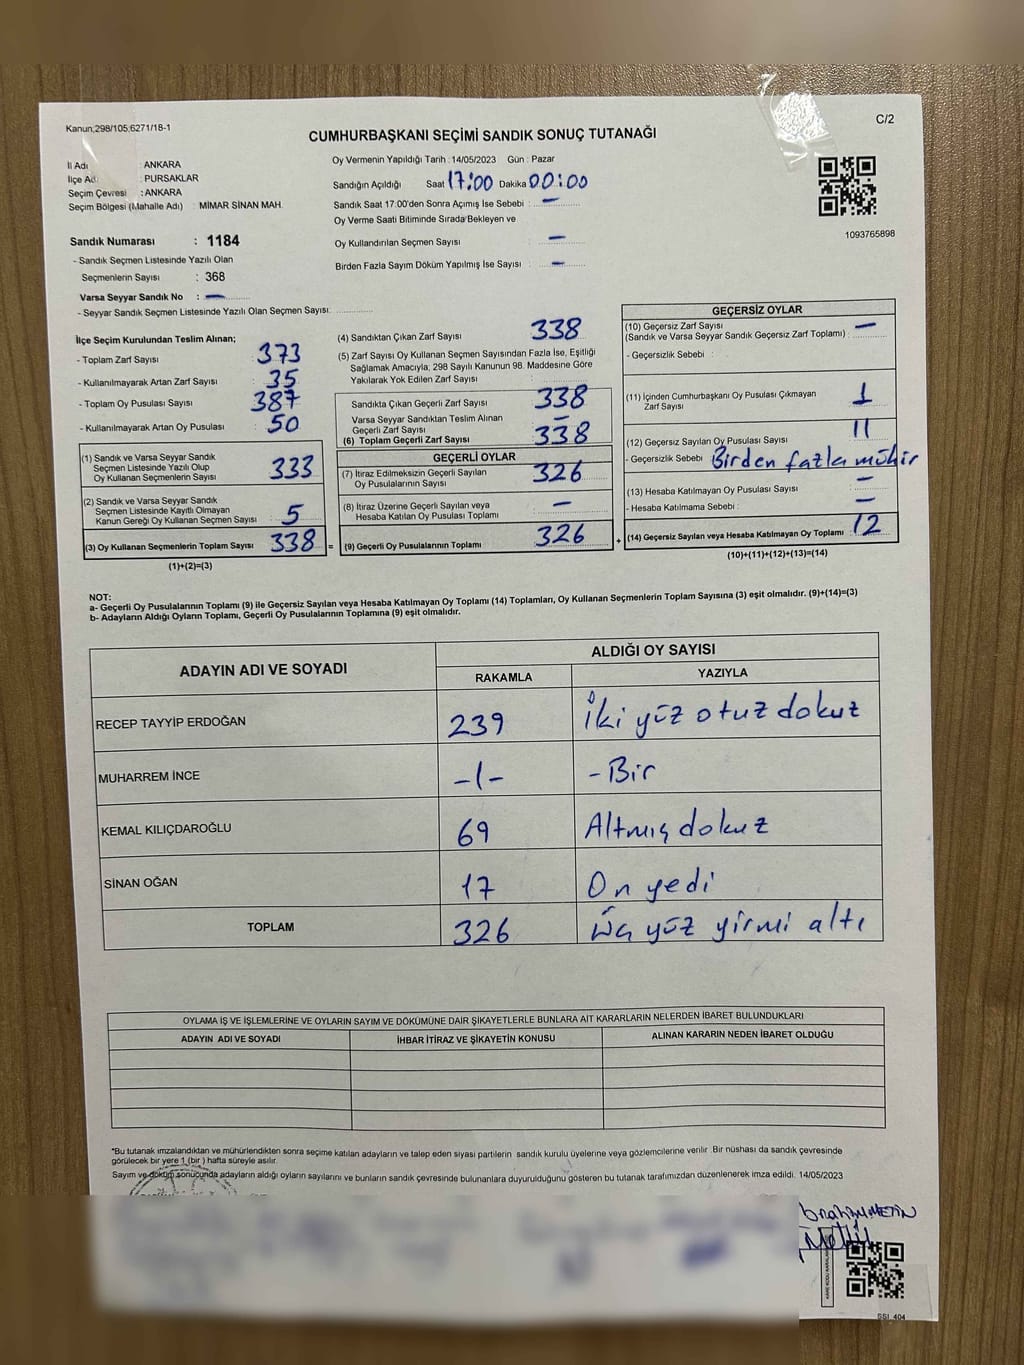 Kanun;298/105;6271/18-1
C/2
CUMHURBAŞKANI SEÇİMİ SANDIK SONUÇ TUTANAĞI
İl Adı : ANKARA
İlçe Ad : PURSAKLAR
Seçim Çevresi : ANKARA
Seçim Bölgesi (Mahalle Adı) : MİMAR SİNAN MAH.
Sandık Numarası : 1184
- Sandık Seçmen Listesinde Yazılı Olan
Seçmenlerin Sayısı : 368
Varsa Seyyar Sandık No : —
- Seyyar Sandık Seçmen Listesinde Yazılı Olan Seçmen Sayısı:
Oy Vermenin Yapıldığı Tarih : 14/05/2023 Gün : Pazar
Sandığın Açıldığı Saat 17:00 Dakika 00:00
Sandık Saat 17.00'den Sonra Açımış İse Sebebi : —
Oy Verme Saati Bitiminde Sırada Bekleyen ve
Oy Kullandırılan Seçmen Sayısı : —
Birden Fazla Sayım Döküm Yapılmış İse Sayısı : —
1093765898
İlçe Seçim Kurulundan Teslim Alınan;
- Toplam Zarf Sayısı : 373
- Kullanılmayarak Artan Zarf Sayısı : 35
- Toplam Oy Pusulası Sayısı : 387
- Kullanılmayarak Artan Oy Pusulası : 50
(1) Sandık ve Varsa Seyyar Sandık
Seçmen Listesinde Yazılı Olup
Oy Kullanan Seçmenlerin Sayısı : 333
(2) Sandık ve Varsa Seyyar Sandık
Seçmen Listesinde Kayıtlı Olmayan
Kanun Gereği Oy Kullanan Seçmen Sayısı : 5
(3) Oy Kullanan Seçmenlerin Toplam Sayısı : 338 =
(1)+(2)=(3)
(4) Sandıktan Çıkan Zarf Sayısı : 338
(5) Zarf Sayısı Oy Kullanan Seçmen Sayısından Fazla İse, Eşitliği
Sağlamak Amacıyla; 298 Sayılı Kanunun 98. Maddesine Göre
Yakılarak Yok Edilen Zarf Sayısı :
Sandıkta Çıkan Geçerli Zarf Sayısı : 338
Varsa Seyyar Sandıktan Teslim Alınan
Geçerli Zarf Sayısı : —
(6) Toplam Geçerli Zarf Sayısı : 338
GEÇERLİ OYLAR
(7) İtiraz Edilmeksizin Geçerli Sayılan
Oy Pusulalarının Sayısı : 326
(8) İtiraz Üzerine Geçerli Sayılan veya
Hesaba Katılan Oy Pusulası Toplamı : —
(9) Geçerli Oy Pusulalarının Toplamı : 326 +
GEÇERSİZ OYLAR
(10) Geçersiz Zarf Sayısı
(Sandık ve Varsa Seyyar Sandık Geçersiz Zarf Toplamı) : —
- Geçersizlik Sebebi :
(11) İçinden Cumhurbaşkanı Oy Pusulası Çıkmayan
Zarf Sayısı : 1
(12) Geçersiz Sayılan Oy Pusulası Sayısı : 11
- Geçersizlik Sebebi : Birden fazla mühür
(13) Hesaba Katılmayan Oy Pusulası Sayısı : —
- Hesaba Katılmama Sebebi : —
(14) Geçersiz Sayılan veya Hesaba Katılmayan Oy Toplamı : 12
(10)+(11)+(12)+(13)=(14)
NOT:
a- Geçerli Oy Pusulalarının Toplamı (9) ile Geçersiz Sayılan veya Hesaba Katılmayan Oy Toplamı (14) Toplamları, Oy Kullanan Seçmenlerin Toplam Sayısına (3) eşit olmalıdır. (9)+(14)=(3)
b- Adayların Aldığı Oyların Toplamı, Geçerli Oy Pusulalarının Toplamına (9) eşit olmalıdır.
ADAYIN ADI VE SOYADI
ALDIĞI OY SAYISI
RAKAMLA YAZIYLA
RECEP TAYYİP ERDOĞAN 239 İki yüz otuz dokuz
MUHARREM İNCE -1- - Bir
KEMAL KILIÇDAROĞLU 69 Altmış dokuz
SİNAN OĞAN 17 On yedi
TOPLAM 326 Üç yüz yirmi altı
OYLAMA İŞ VE İŞLEMLERİNE VE OYLARIN SAYIM VE DÖKÜMÜNE DAİR ŞİKAYETLERLE BUNLARA AİT KARARLARIN NELERDEN İBARET BULUNDUKLARI
ADAYIN ADI VE SOYADI İHBAR İTİRAZ VE ŞİKAYETİN KONUSU ALINAN KARARIN NEDEN İBARET OLDUĞU
*Bu tutanak imzalandıktan ve mühürlendikten sonra seçime katılan adayların ve talep eden siyasi partilerin sandık kurulu üyelerine veya gözlemcilerine verilir. Bir nüshası da sandık çevresinde
görülecek bir yere 1 (bir) hafta süreyle asılır.
Sayım ve döküm sonucunda adayların aldığı oyların sayılarını ve bunların sandık çevresinde bulunanlara duyurulduğunu gösteren bu tutanak tarafımızdan düzenlenerek imza edildi. 14/05/2023
İbrahim METİN
SSI 404